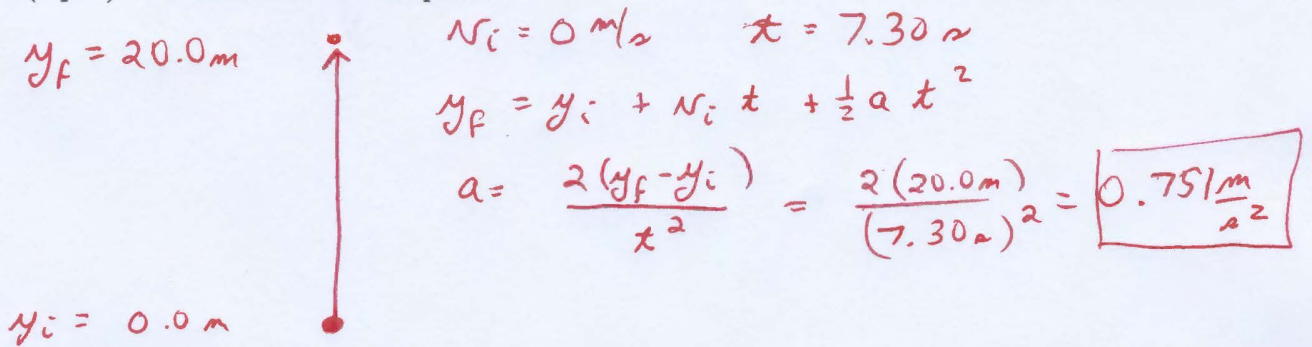 y_f = 20.0 m
v_i = 0 m/s t = 7.30 s
y_f = y_i + v_i t + ½ a t²
a = 2(y_f - y_i) / t² = 2(20.0 m) / (7.30 s)² = 0.751 m/s²
y_i = 0.0 m